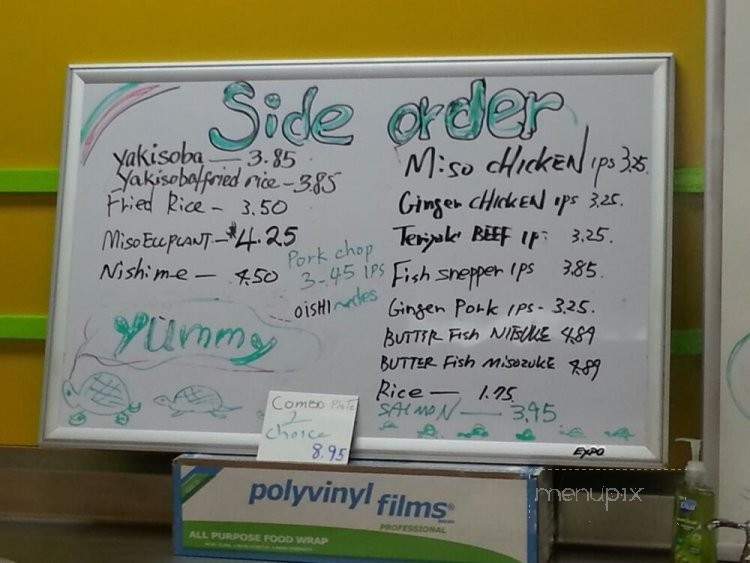 Side order
yakisoba — 3.85
yakisoba/fried rice - 3.85
Fried Rice - 3.50
Miso EGGPLANT - $4.25
Nishime — 4.50
Pork chop
3-45 1PS
OISHI
yummy
Miso CHICKEN 1PS 3.25
Ginger CHICKEN 1PS 3.25.
Teriyaki BEEF 1P 3.25.
Fish snepper 1PS 3.85.
Ginger Pork 1PS - 3.25.
BUTTER Fish NITSUKE 4.89
BUTTER Fish MISOZUKE 4.89
Rice — 1.75
SALMON — 3.95
EXPO
COMBO Plate
2
choice
8.95
polyvinyl films
PROFESSIONAL
ALL PURPOSE FOOD WRAP
menupix
Dial